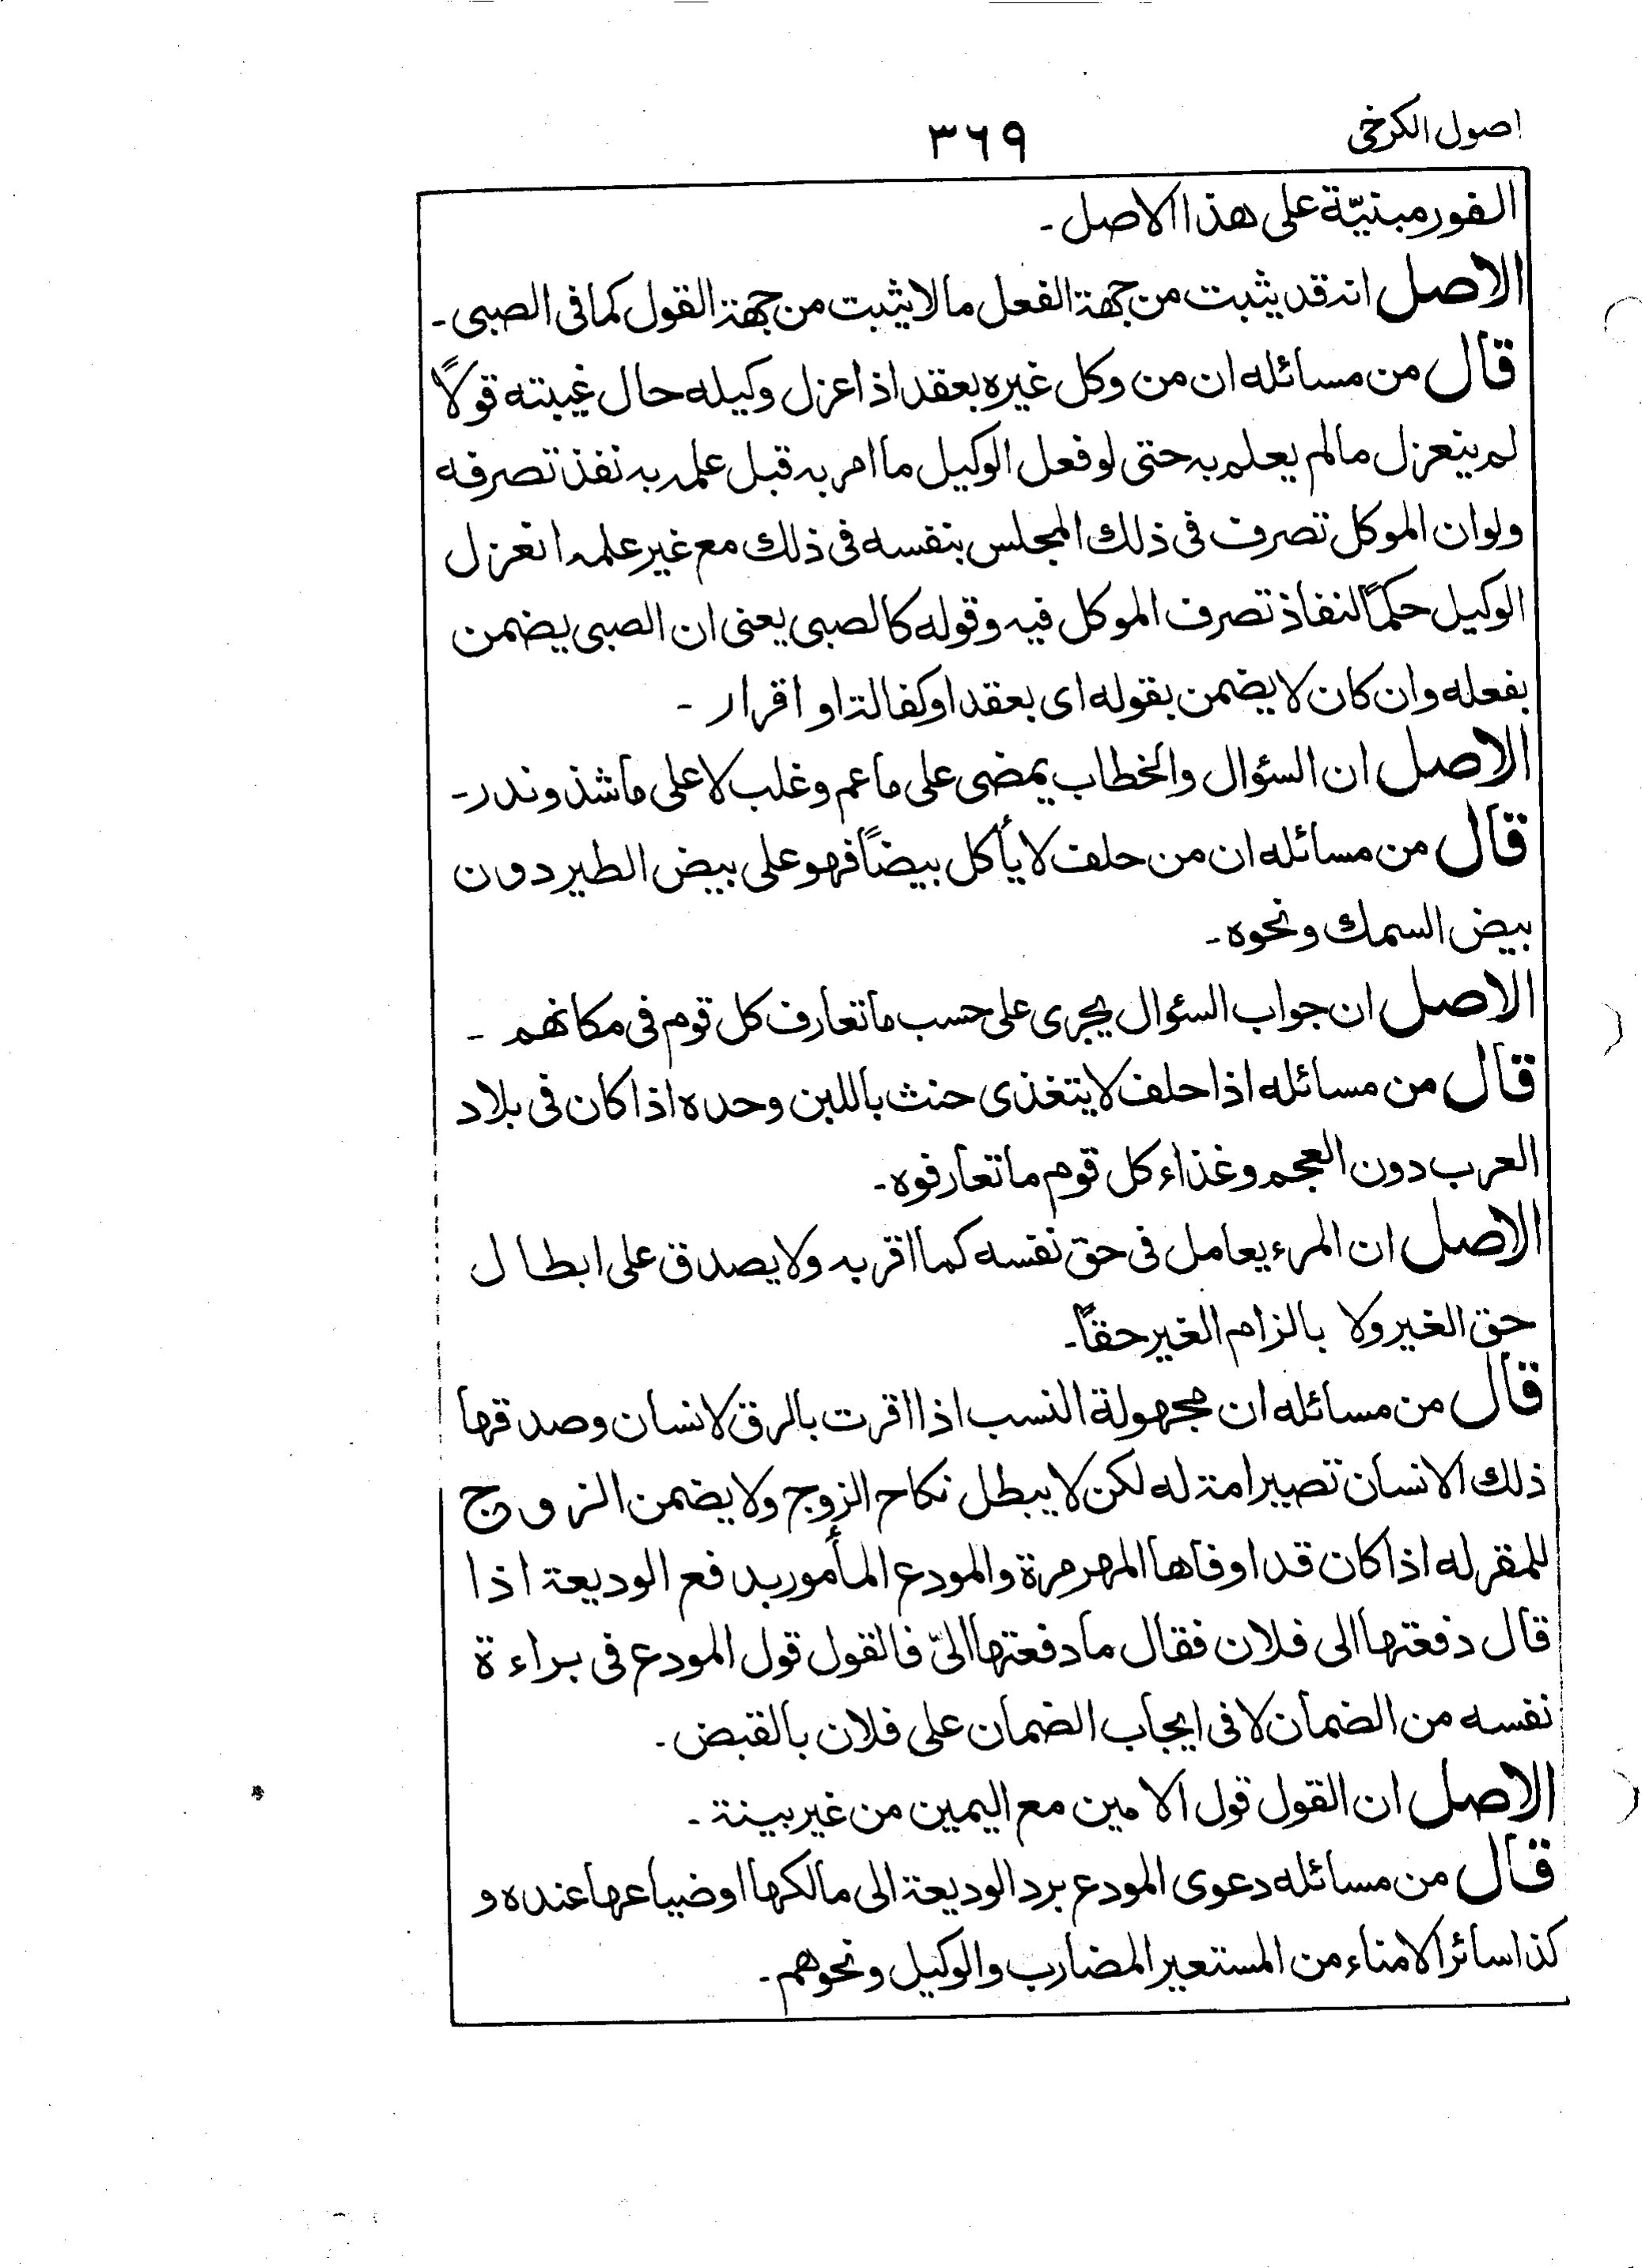 اصول الكرخى
٣٦٩
الفور مبنيّة على هذا الاصل ـ
الاصل انه قد يثبت من جهة الفعل ما لا يثبت من جهة القول كما فى الصبى ـ
قال من مسائله ان من وكل غيره بعقد اذا عزل وكيله حال غيبته قولاً
لم ينعزل ما لم يعلم به حتى لو فعل الوكيل ما امر به قبل علمه به نفذ تصرفه
ولو ان الموكل تصرف فى ذلك المجلس بنفسه فى ذلك مع غير علمه انعزل
الوكيل حكمًا لنفاذ تصرف الموكل فيه وقوله كالصبى يعنى ان الصبى يضمن
بفعله وان كان لا يضمن بقوله اى بعقد او كفالة او اقرار ـ
الاصل ان السئوال والخطاب يمضى على ما عم وغلب لا على ما شذ وندر ـ
قال من مسائله ان من حلف لا يأكل بيضاً فهو على بيض الطير دون
بيض السمك ونحوه ـ
الاصل ان جواب السئوال يجرى على حسب ما تعارف كل قوم فى مكانهم ـ
قال من مسائله اذا حلف لا يتغذى حنث باللبن وحده اذا كان فى بلاد
العرب دون العجم وغذاء كل قوم ما تعارفوه ـ
الاصل ان المرء يعامل فى حق نفسه كما اقر به ولا يصدق على ابطال
حق الغير ولا بالزام الغير حقاً ـ
قال من مسائله ان مجهولة النسب اذا اقرت بالرق لانسان وصدقها
ذلك الانسان تصير امة له لكن لا يبطل نكاح الزوج ولا يضمن الزوج
للمقر له اذا كان قد اوفاها المهر مرة والمودع المأمور بدفع الوديعة اذا
قال دفعتها الى فلان فقال ما دفعتها الىّ فالقول قول المودع فى براءة
نفسه من الضمان لا فى ايجاب الضمان على فلان بالقبض ـ
الاصل ان القول قول الامين مع اليمين من غير بينة ـ
قال من مسائله دعوى المودع برد الوديعة الى مالكها او ضياعها عنده و
كذا سائر الامناء من المستعير المضارب والوكيل ونحوهم ـ